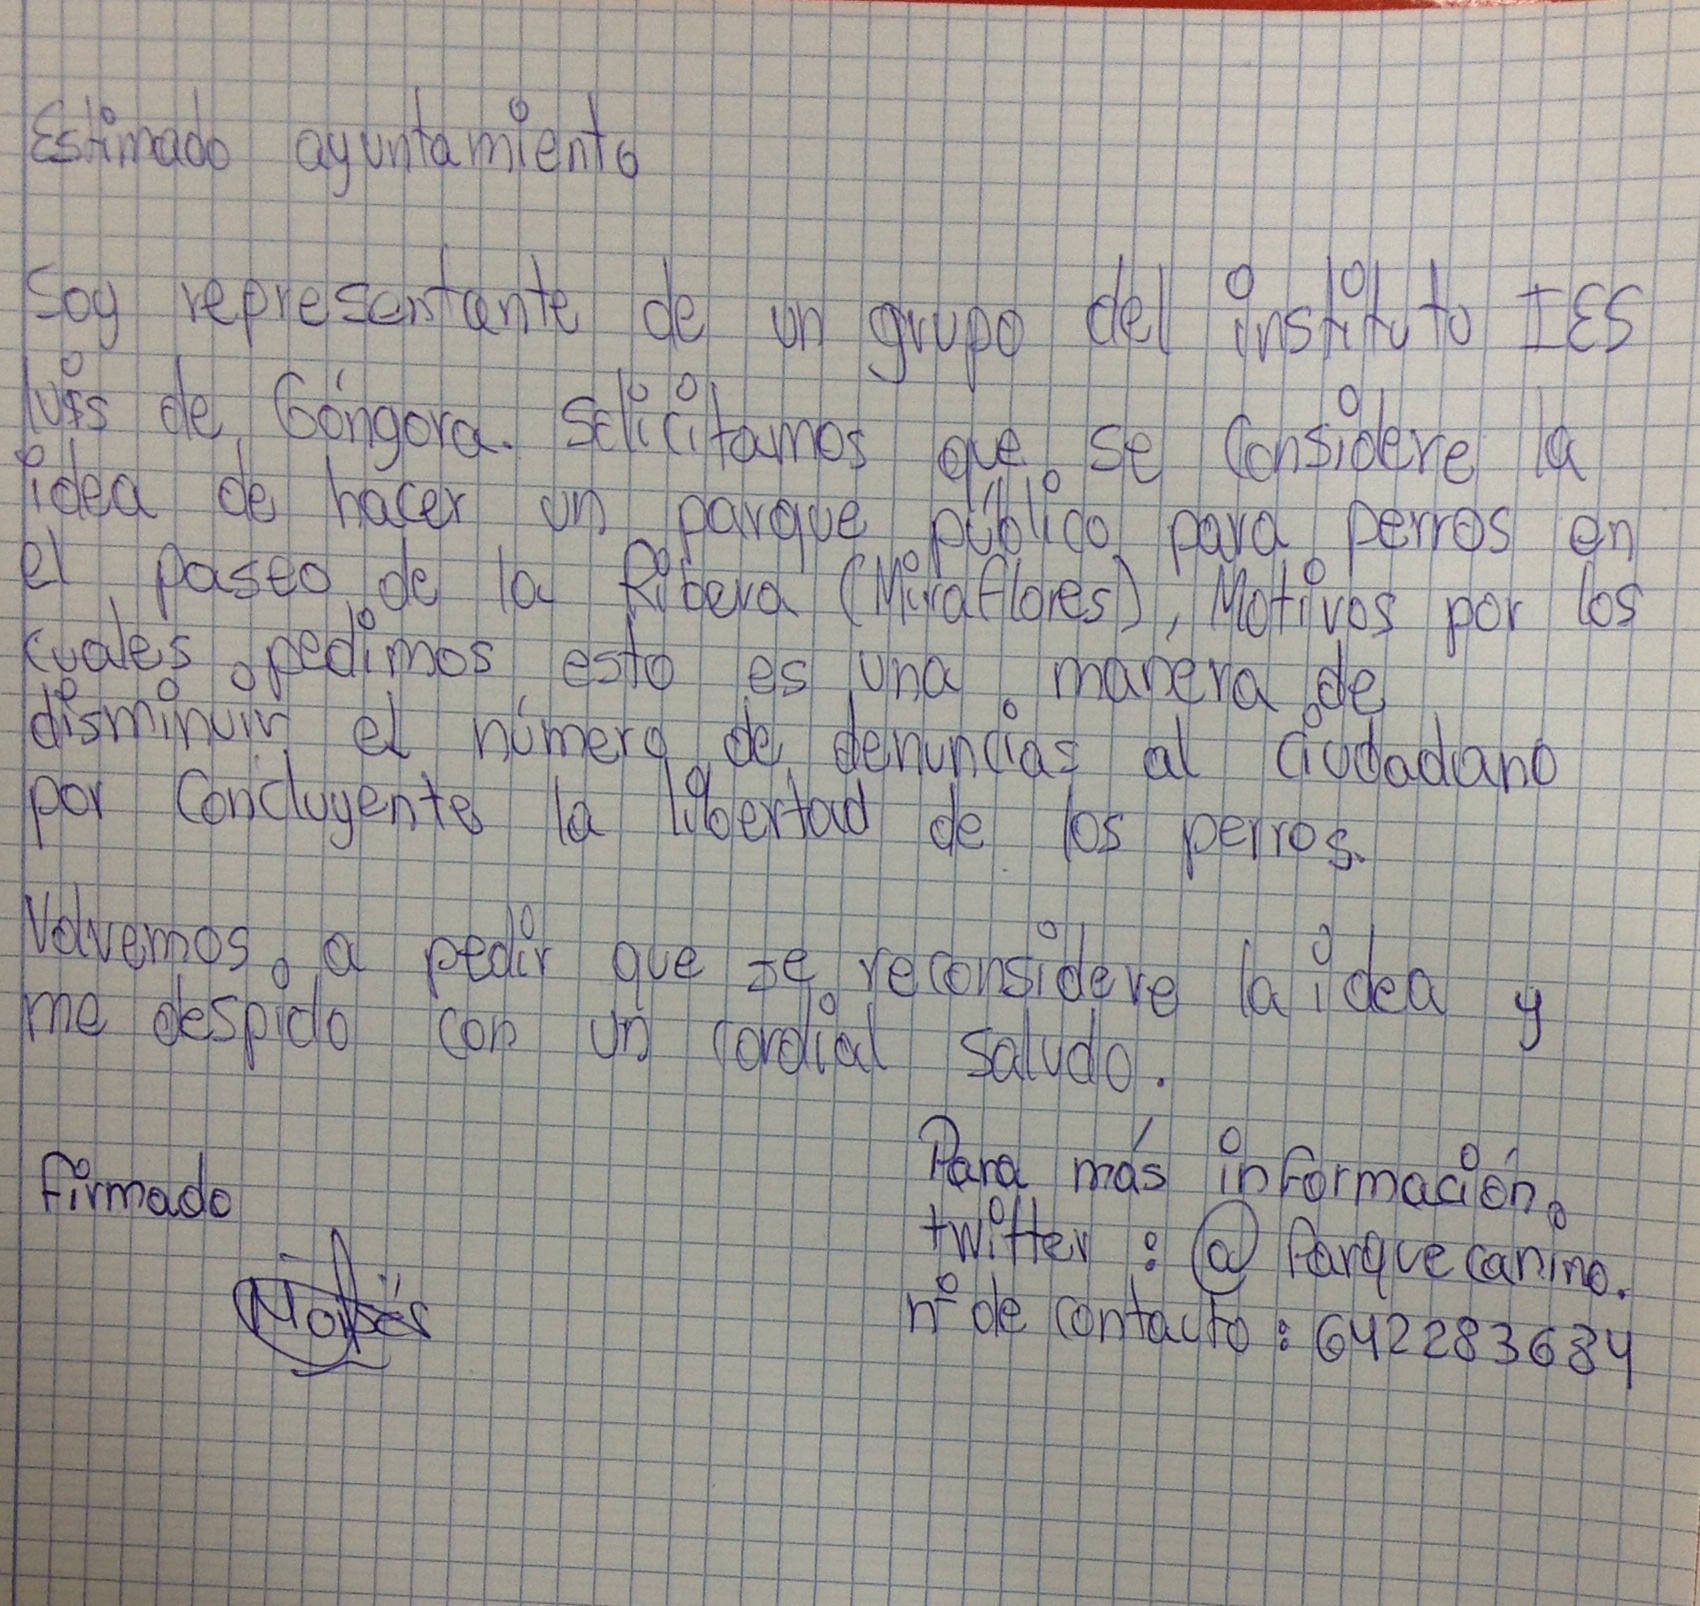 Estimado ayuntamiento
Soy representante de un grupo del instituto IES
luis de Góngora. Solicitamos que se considere la
idea de hacer un parque público para perros en
el paseo de la Ribera (Miraflores), Motivos por los
cuales pedimos esto es una manera de
disminuir el número de denuncias al ciudadano
por concluyente la libertad de los perros.
Volvemos a pedir que se reconsidere la idea y
me despido con un cordial saludo.
Firmado
Moisés
Para más información
twitter : @Parquecanino.
nº de contacto : 642283684